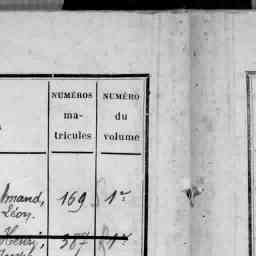 NUMÉROS
ma-
tricules
NUMÉRO
du
volume
Amand, 169 1er
Léon.
Henri, 387 1er